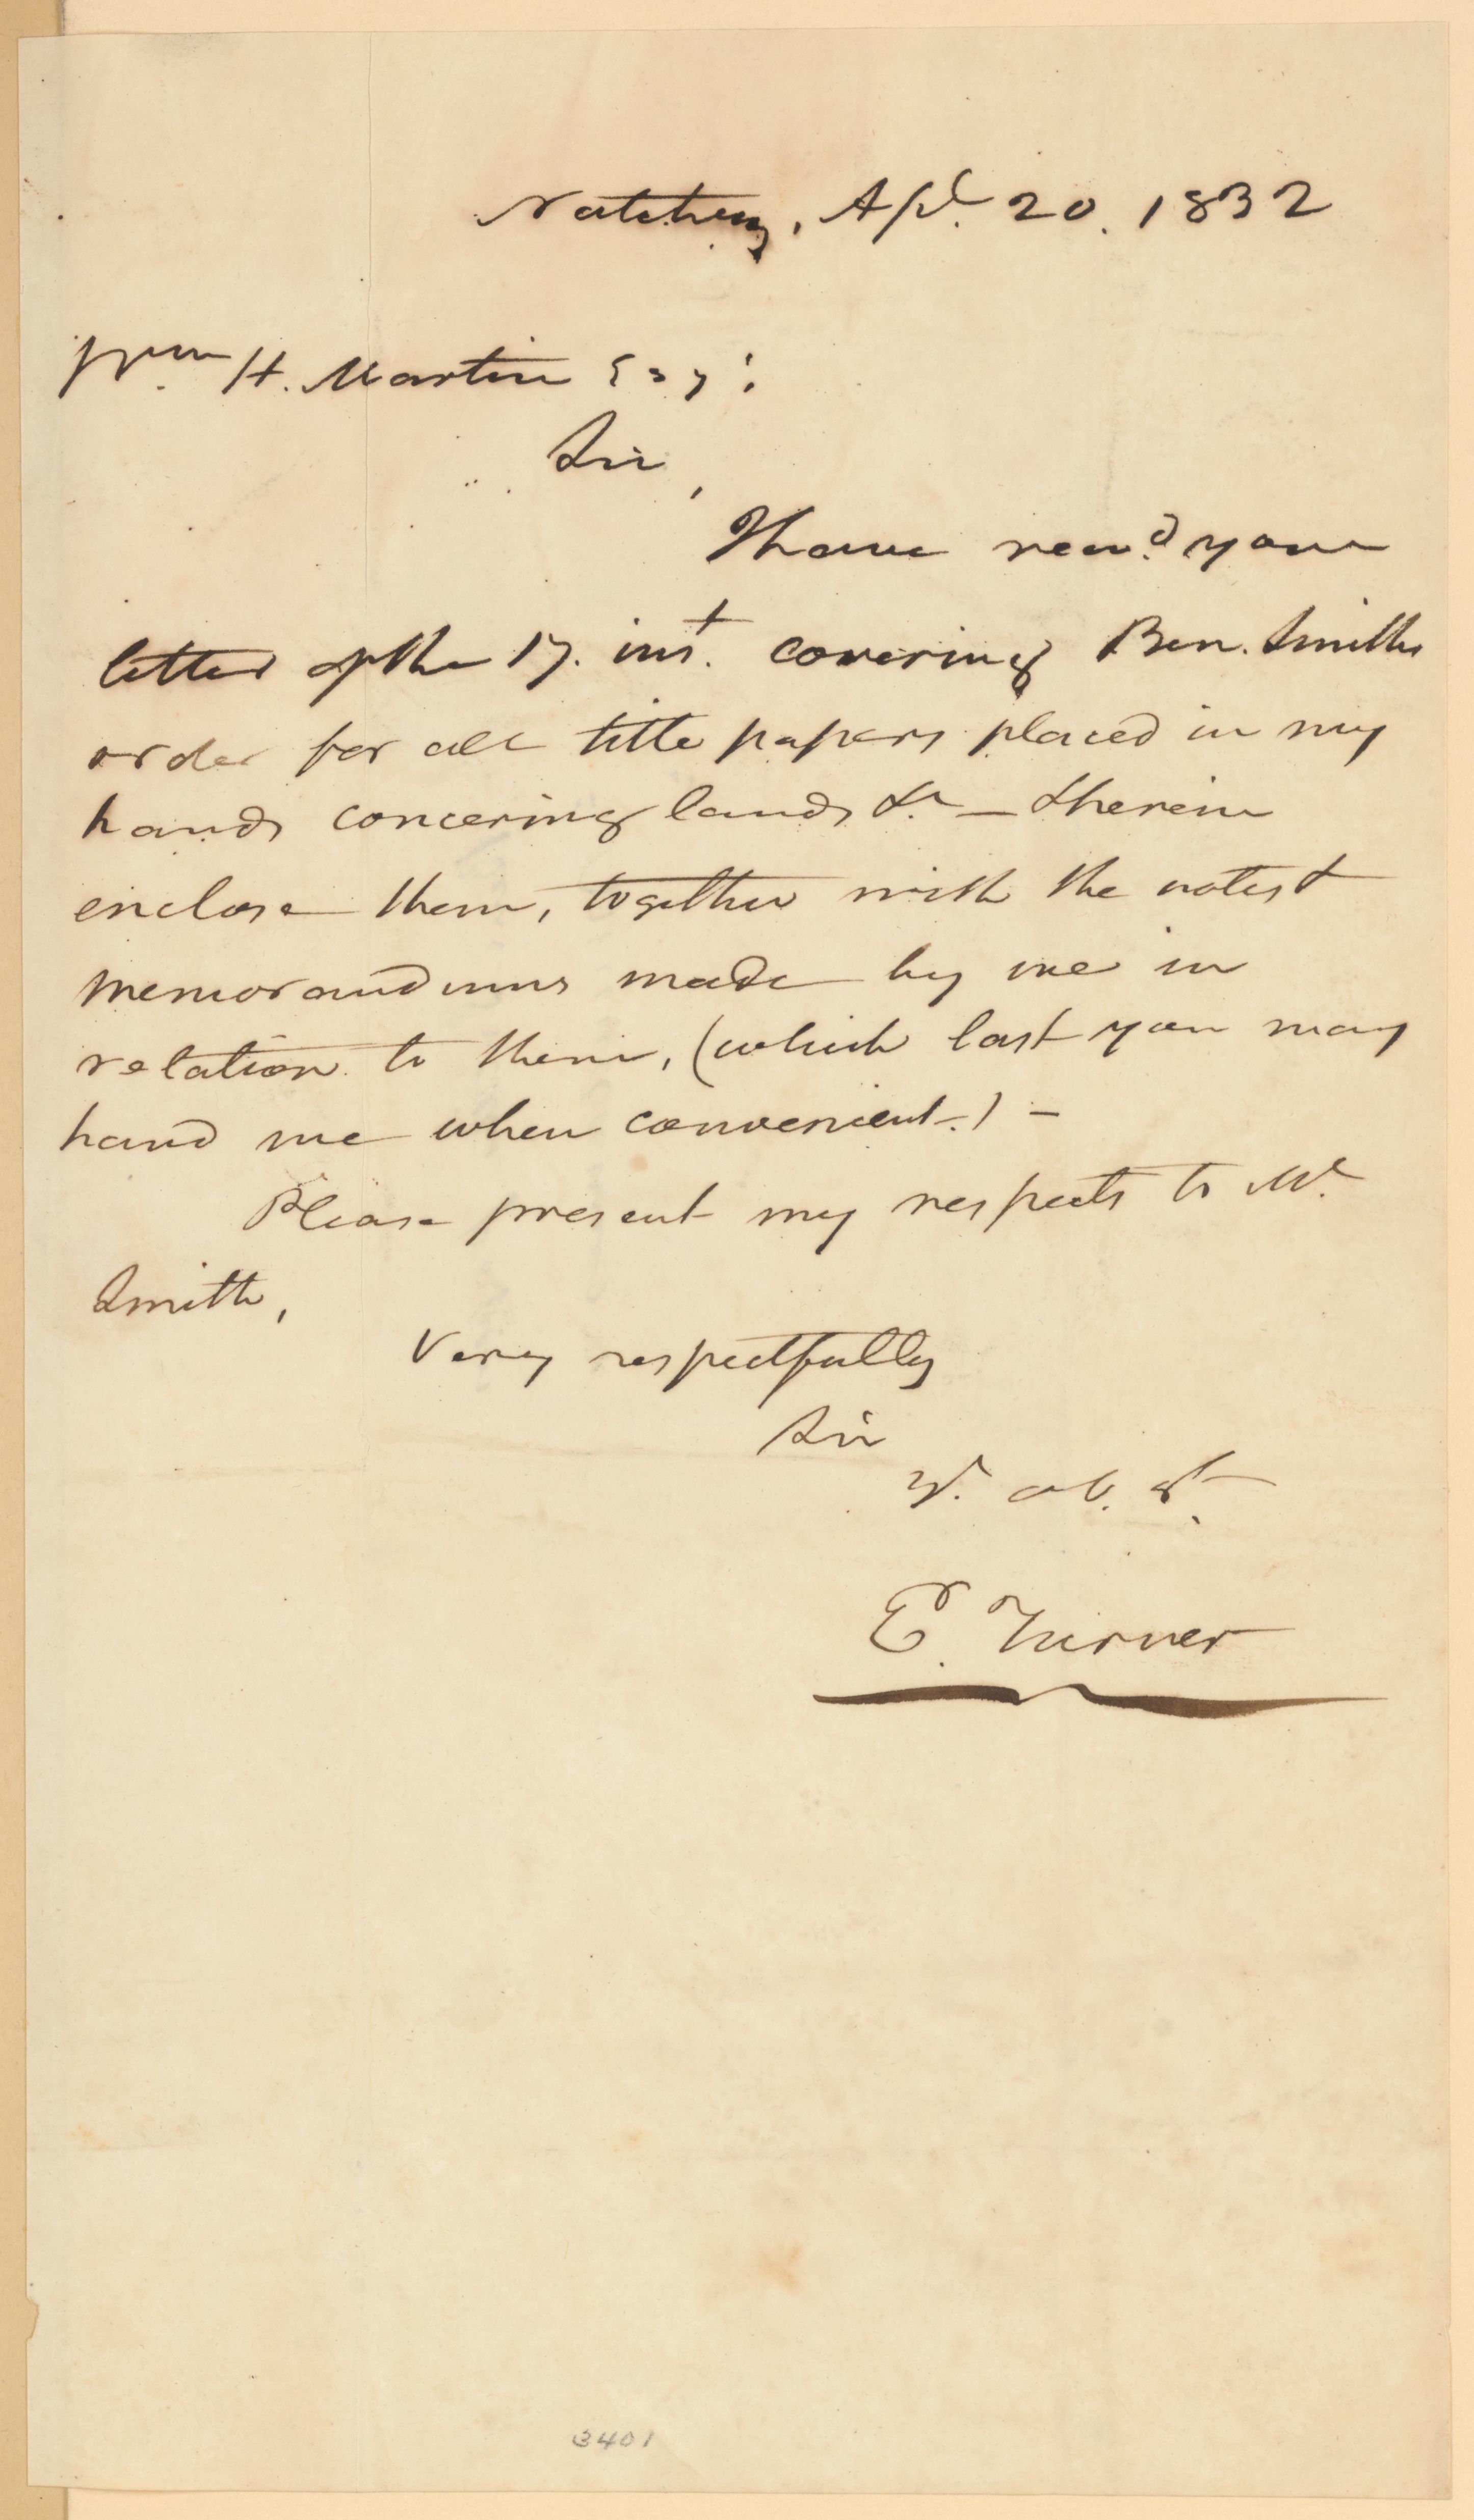 Natchez, Apl. 20. 1832
Wm. H. Martin Esq:
Sir,
I have recd. your
letter of the 17. inst. covering Ben. Smiths
order for all title papers placed in my
hands concering lands &c — I herein
enclose them, together with the notes &
memorandums made by me in
relation to them, (which last you may
hand me when convenient.) —
Please present my respects to Mr.
Smith,
Very respectfully
Sir
Yr. ob. St.
E. Turner
3401